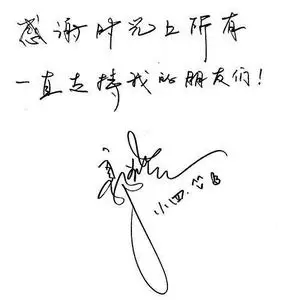 感谢时光上所有
一直支持我的朋友们!
小四.